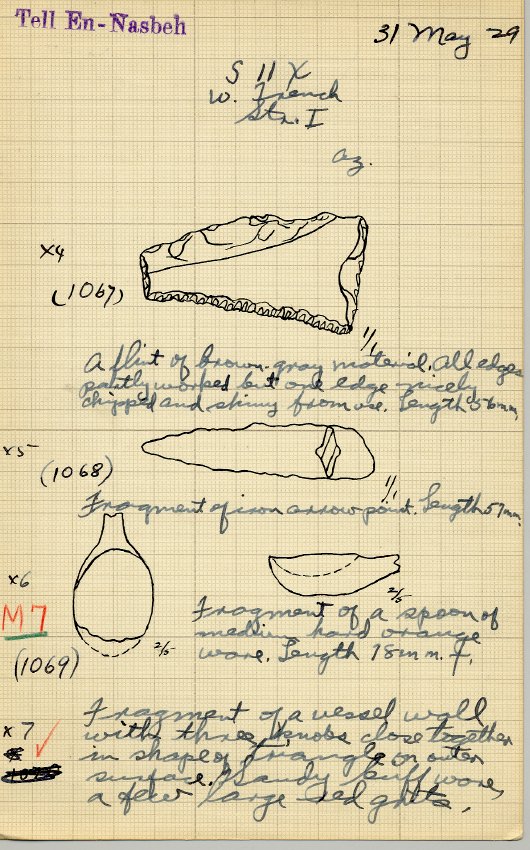 Tell En-Nasbeh
31 May 29
S 11 X
W. French
Str. I
az.
x4
(1067)
1/1
A flint of brown-gray material. All edges
partly worked but one edge nicely
chipped and shiny from use. Length 56mm,
x5
(1068)
1/1
Fragment of iron arrow point. Length 57mm.
x6
M7
(1069)
2/5
2/5
Fragment of a spoon of
medium hard orange
ware. Length 78mm.
x7
Fragment of a vessel wall
with three knobs close together
in shape of triangle on outer
surface. Sandy buff ware,
a few large red grits.